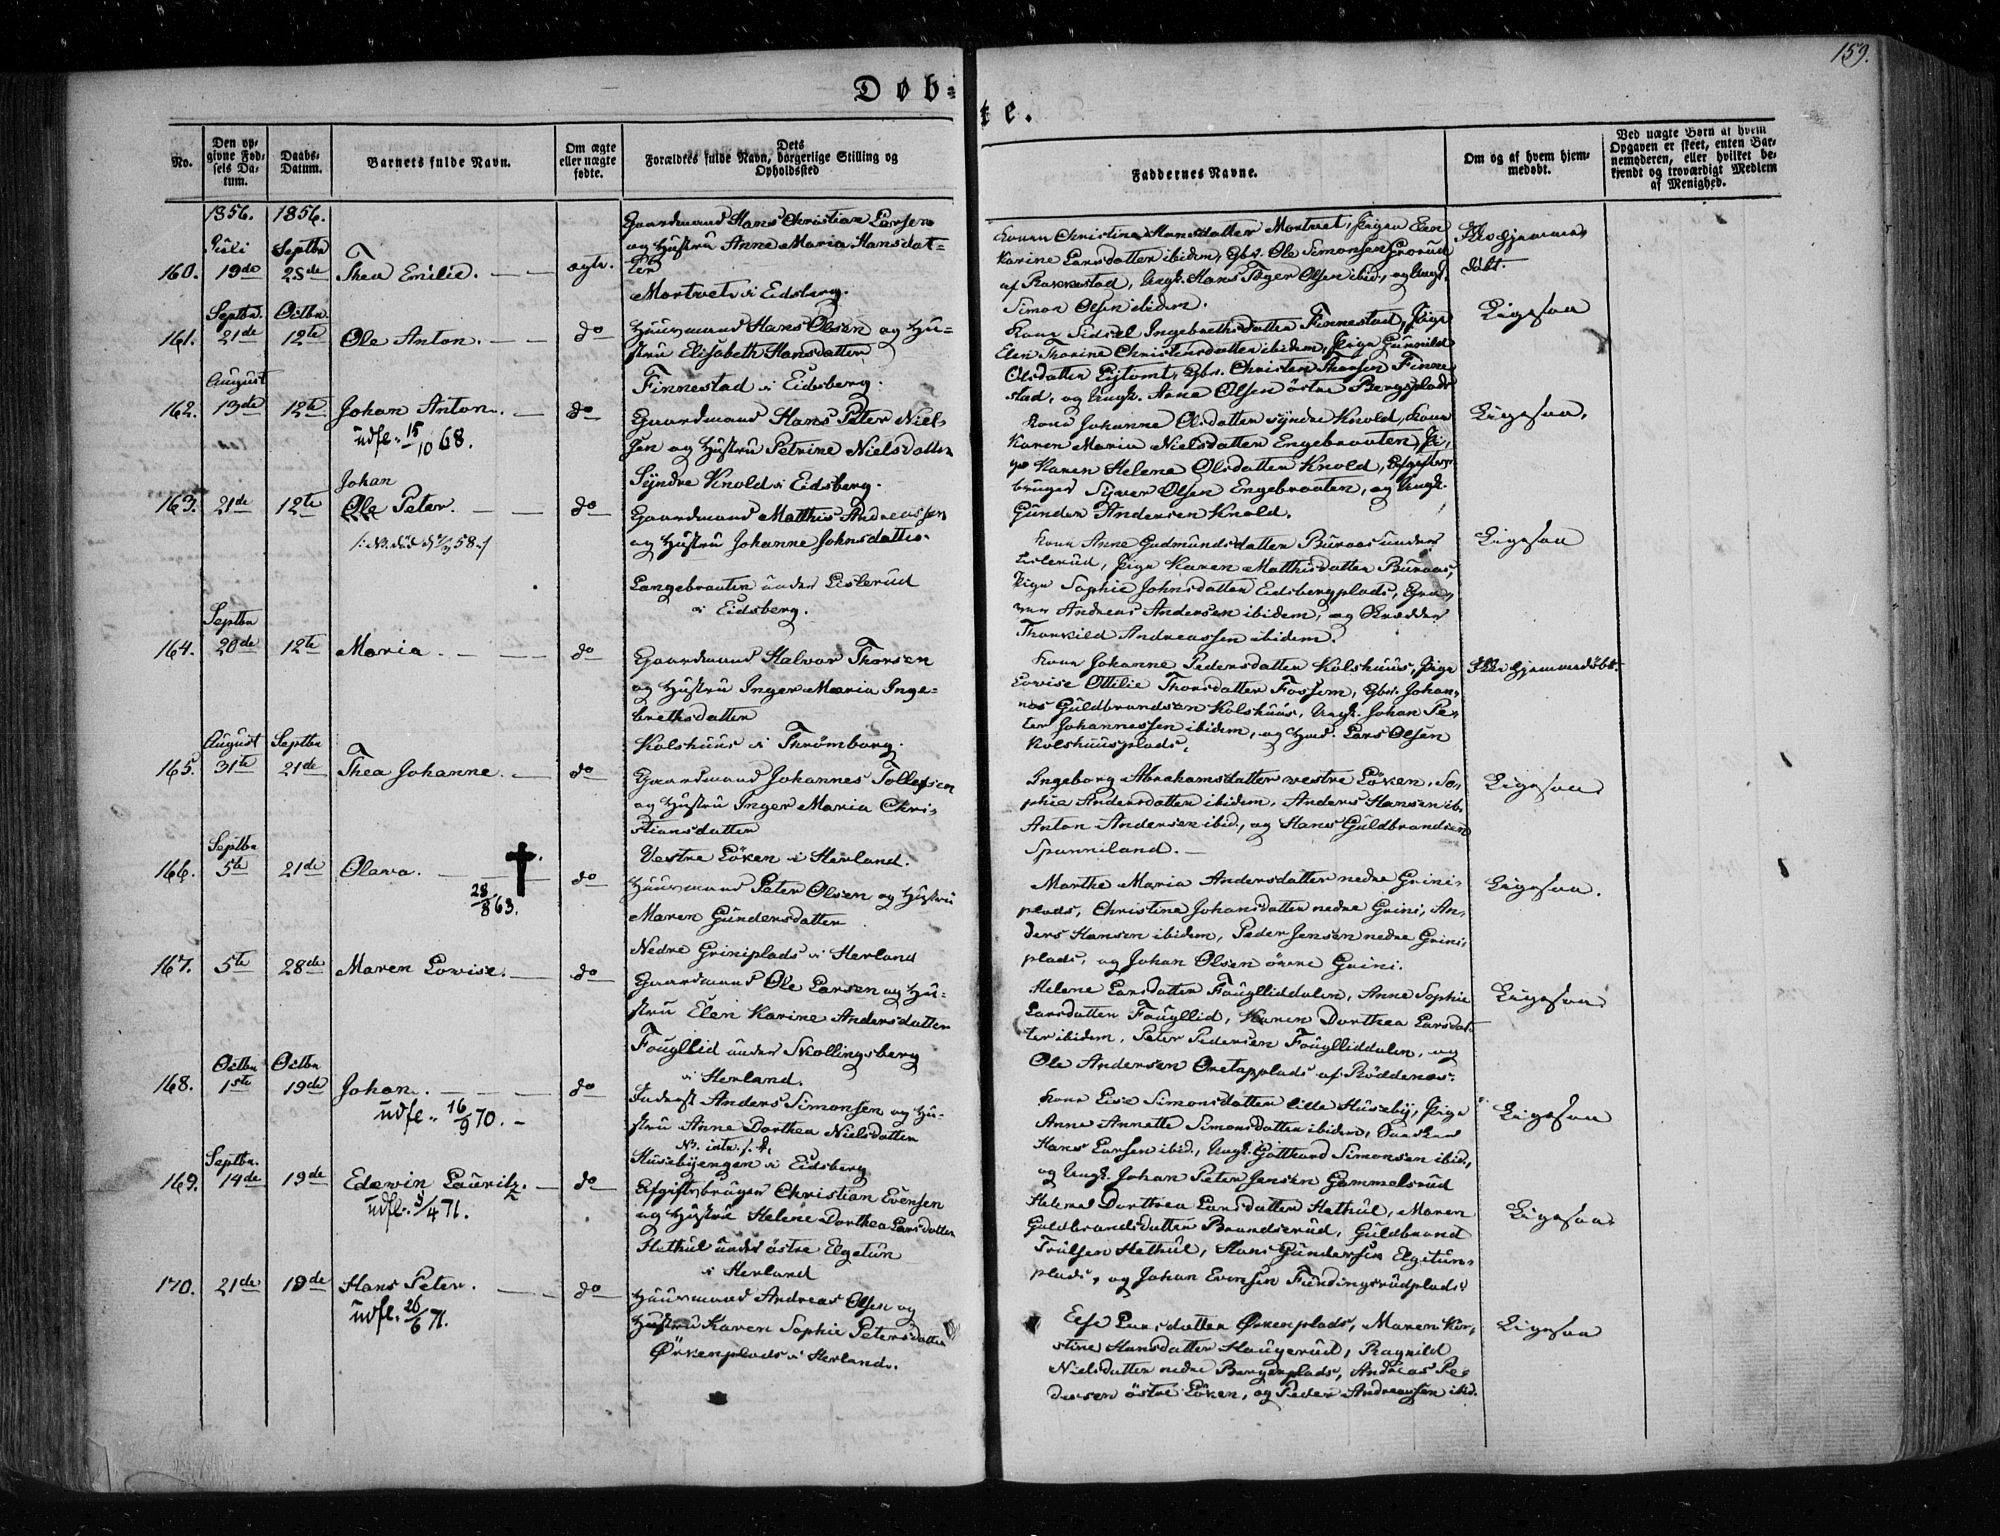 159.
Døb-
te.
No.
Den op-
givne Fød-
sels Da-
tum.
Daabs-
Datum.
Barnets fulde Navn.
Om ægte
eller uægte
fødte.
Dets
Forældres fulde Navn, borgerlige Stilling og
Opholdssted
Faddernes Navne.
Om og af hvem hjem-
medøbt.
Ved uægte Børn af hvem
Opgaven er skeet, enten Bar-
nemoderen, eller hvilket be-
kjendt og troværdigt Medlem
af Menighed.
1856. 1856.
Juli Septbr
160. 19de 28de Thea Emilie. ægte.
Gaardmand Hans Christian Larsen
og Hustru Anne Maria Hansdat-
ter
Mortvet i Eidsberg.
Kone Christine Hansdatter Mortvet, Pige Elen
Karine Larsdatter ibidem, Gbr. Ole Simonsen Grorud
af Rakkestad, Ungk. Hans Olsen ibid., og Ungk.
Simon Olsen ibidem.
Hjemme
døbt.
Septbr. Octbr.
161. 21de 12te Ole Anton. do
Huusmand Hans Olsen og Hu-
stru Elisabeth Hansdatter
Finnestad i Eidsberg.
Kone Sidsel Ingebrethsdatter Finnestad, Pige
Elen Thorine Christensdatter ibidem, Pige Gunnild
Olsdatter Lystomt, Gbr. Christen Thorsen Finne
stad, og Ungk. Arne Olsen østre Bergsplads
Ligesaa
August
162. 13de 12te Johan Anton. do
udfl. 15/10 68.
Gaardmand Hans Peter Niel-
sen og Hustru Petrine Nielsdatter
Syndre Knold i Eidsberg.
Kone Johanne Olsdatter syndre Knold, Kone
Karen Maria Nielsdatter Engebraaten, Pi-
ge Karen Helene Olsdatter Knold, Afgifts-
bruger Syver Olsen Engebraaten, og Ungk.
Gunder Andersen Knold.
Ligesaa.
Johan
163. 21de 12te Ole Peter. do
58./
Gaardmand Matthis Andreassen
og Hustru Johanne Johnsdatter
Langebraaten under Lislerud
i Eidsberg.
Kone Anne Gudmundsdatter Buraas under
Lislerud, Pige Karen Matthisdatter Buraas,
Pige Sophie Johnsdatter Eidsbergplads, Gra-
ver Andreas Andersen ibidem, og Skrædder
Thorkild Andreassen ibidem.
Ligesaa
Septbr
164. 20de 12te Maria. do
Gaardmand Halvor Thorsen
og Hustru Inger Maria Inge-
brethsdatter
Kolshuus i Thrømborg.
Kone Johanne Pedersdatter Kolshuus, Pige
Lovise Ottilie Thorsdatter Fossem, Gbr. Johan-
nes Guldbrandsen Kolshuus, Ungk. Johan Pe-
ter Johannessen ibidem, og Hmd. Lars Olsen
Kolshuusplads.
Hjemmedøbt.
August Septbr
165. 31te 21de Thea Johanne. do
Gaardmand Johannes Tollefsen
og Hustru Inger Maria Chri-
stiansdatter
Vestre Löken i Herland.
Ingeborg Abrahamsdatter vestre Löken, So-
phie Andersdatter ibidem, Anders Hansen ib.
Anton Andersen ibid., og Hans Guldbrandsen
Spanniland.
Ligesaa
Septbr
166. 5te 21de Olava. do
28/8 63.
Huusmand Peter Olsen og Hustru
Maren Gundersdatter
Nedre Griniplads i Herland
Marthe Maria Andersdatter nedre Grini-
plads, Christine Johansdatter nedre Grini, An-
ders Hansen ibidem, Peder Jensen nedre Grini-
plads, og Johan Olsen övre Grini.
Ligesaa.
167. 5te 28de Maren Lovise. do
Gaardmand Ole Larsen og Hu-
stru Elen Karine Andersdatter
Fougllid under Skollingsberg
i Herland.
Helene Larsdatter Fouglliddalen, Anne Sophie
Larsdatter Fougllid, Karen Dorthea Larsdat-
ter ibidem, Peter Pedersen Fouglliddalen, og
Ole Andersen Oretapplads af Röddenæs.
Ligesaa
Octbr Octbr
168. 1ste 19de Johan. do
udfl. 16/9 70.
Inderst Anders Simonsen og Hu-
stru Anne Dorthea Nielsdatter
Husebyengen i Eidsberg
Kone Lise Simonsdatter lille Huseby, Pige
Anne Annette Simonsdatter ibidem,
Hans Larsen ibid., Ungk. Gotthard Simonsen ibid.,
og Ungk. Johan Peter Jensen Gammelsrud
Ligesaa
Septbr.
169. 14de 19de Edewin Lauritz. do
udfl. 3/4 71.
Afgiftsbruger Christian Evensen
og Hustru Helene Dorthea Larsdatter
Hethul under östre Elgetun
i Herland
Helene Dorthea Larsdatter Hethul, Maren
Guldbrandsdatter Brandsrud, Guldbrand
Trulsen Hethul, Hans Gundersen Elgetun-
plads, og Johan Evensen Fundingsrudplads
Ligesaa
170. 21de 19de Hans Peter. do
udfl. 26/6 71.
Huusmand Andreas Olsen og
Hustru Karen Sophie Petersdatter
Ørkenplads i Herland.
Larsdatter Ørkenplads, Maren Kir-
stine Hansdatter Haugerud, Ragnild
Nielsdatter nedre Bergerplads, Andreas Pe-
dersen östre Löken, og Peder Andreassen ibid.
Ligesaa